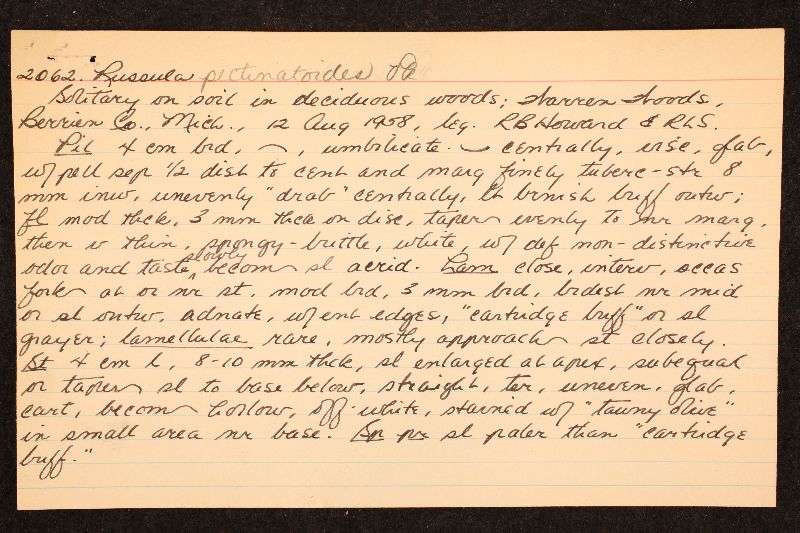 2062. Russula pectinatoides Pk
Solitary on soil in deciduous woods; Warren Woods,
Berrien Co., Mich., 12 Aug 1958, leg. RB Howard & RLS.
Pil 4 cm brd, ⌒, umbilicate-⌣ centrally, visc, glab,
w/ pell sep 1/2 dist to cent and marg finely tuberc-str 8
mm inw, unevenly "drab" centrally, lt brnish buff outw;
fl mod thck, 3 mm thck on disc, taper evenly to nr marg,
then v thin, spongy-brittle, white, w/ def non-distinctive
odor and taste slowly becom sl acrid. Lam close, interv, occas
fork at or nr st, mod brd, 3 mm brd, brdest nr mid
or sl outw, adnate, w/ ent edges, "cartridge buff" or sl
grayer; lamellulae rare, mostly approach st closely.
St 4 cm l, 8-10 mm thck, sl enlarged at apex, subequal
or taper sl to base below, straight, ter, uneven, glab,
cart, becom hollow, off-white, stained w/ "tawny olive"
in small area nr base. Sp pr sl paler than "cartridge
buff."